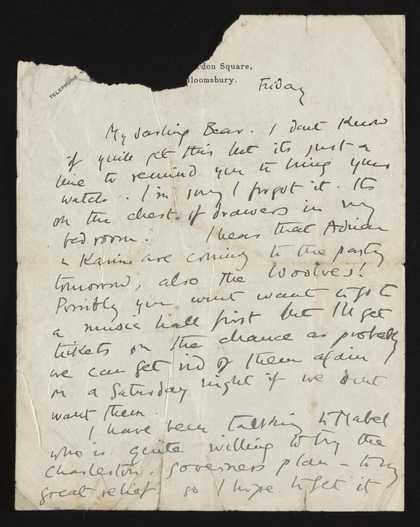 TELEPHONE
rdon Square,
loomsbury.
Friday
My darling Bear. I dont know
if you'll get this but its just a
line to remind you to bring your
watch. I'm sorry I forgot it. Its
on the chest of drawers in my
bed room. I hear that Adrian
& Karin are coming to the party
tomorrow, also the Woolves!
Possibly you wont want to go to
a music hall first but I'll get
tickets on the chance as probably
we can get rid of them again
on a Saturday night if we dont
want them.
I have been talking to Mabel
who is quite willing to try the
Charleston governess plan - to my
great relief so I hope to get it